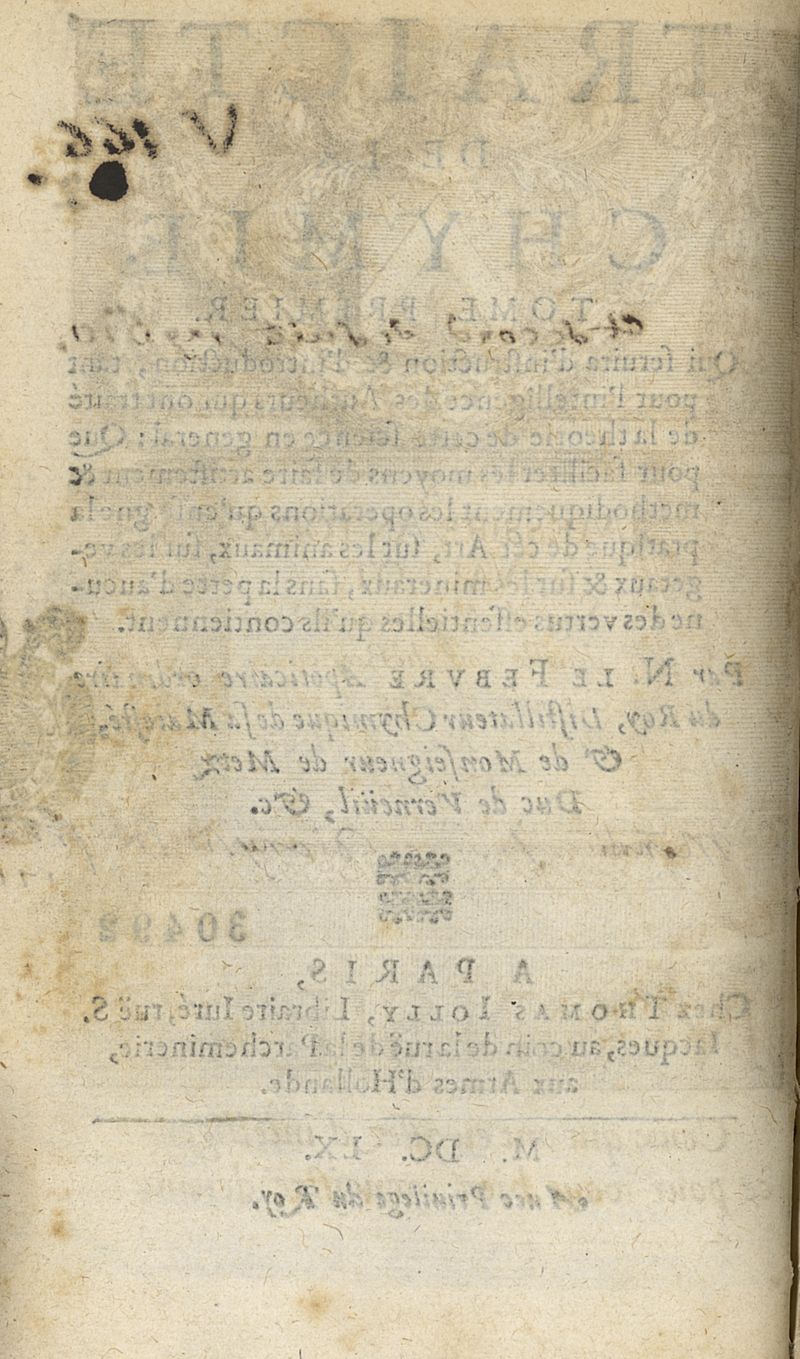 TRAICTÉ
DE LA
CHYMIE
TOME PREMIER.
Qui seruira d'instruction & d'introduction, tant
pour l'intelligence des Autheurs qui ont traité
de la theorie de cette science en general: Que
pour faciliter les moyens de faire artistement &
methodiquement les operations qu'enseigne la
pratique de cét Art, sur les animaux, sur les ve-
getaux & sur les mineraux, sans la perte d'aucu-
ne des vertus essentielles qu'ils contiennent.
Par N. LE FEBVRE Apoticaire ordinaire
du Roy, Distillateur Chymique de sa Majesté,
& de Monseigneur de Metz
Duc de Verneüil, &c.
30492
A PARIS,
Chez THOMAS IOLLY, Libraire Iuré, ruë S.
Iacques, au coin de la ruë de la Parcheminerie,
aux Armes d'Hollande.
M. DC. LX.
Auec Priuilege du Roy.